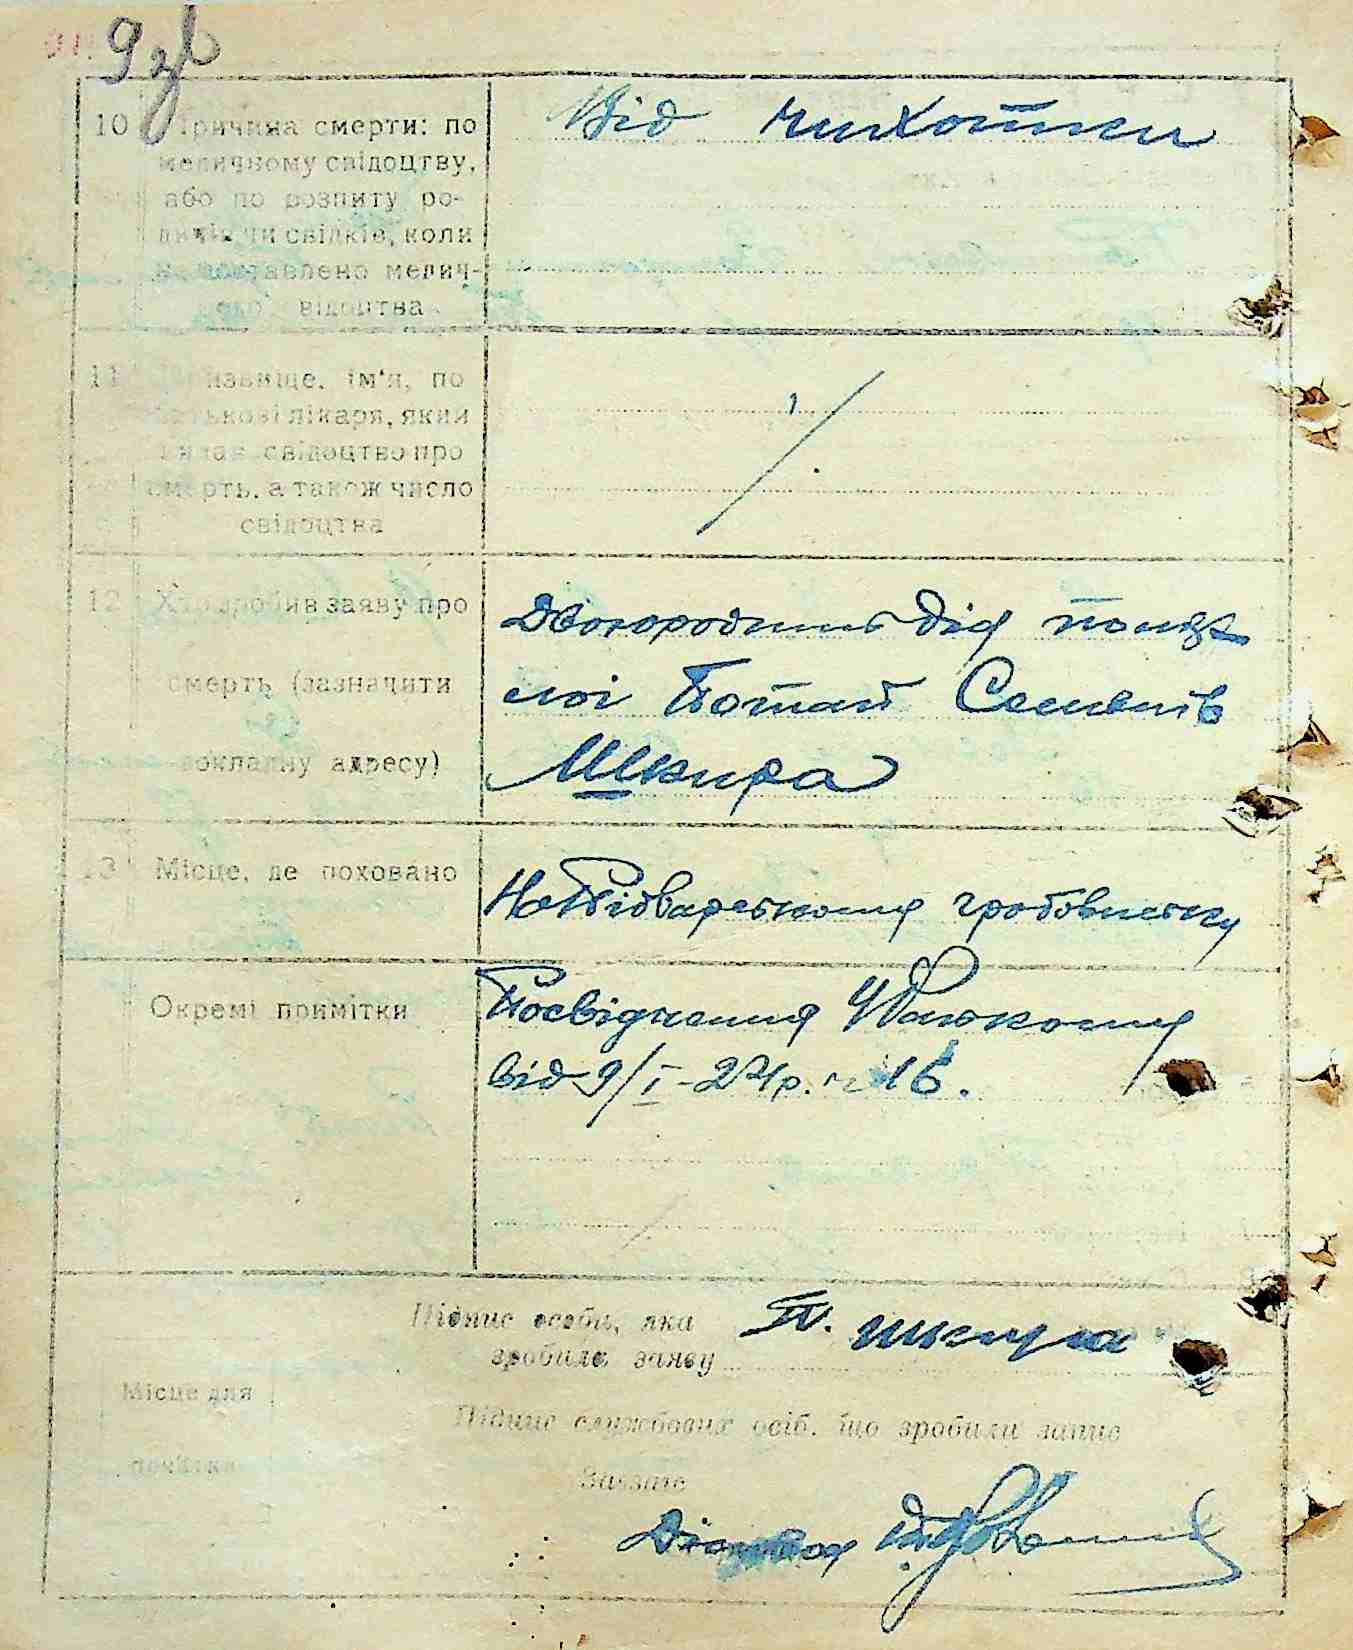 9 зв
10 Причина смерти: по
медичному свідоцтву,
або по розпиту ро-
дичів чи свідків, коли
не поставлено медич-
ного свідоцтва
Від чихотки
11 Прізвище, ім'я, по
батькові лікаря, який
видав свідоцтво про
смерть, а також число
свідоцтва
12 Хто зробив заяву про
смерть (зазначити
докладну адресу)
Двоюродний дід
Потап Семенів
Шкира
13 Місце, де поховано
На Підварському гробовиську
Окремі примітки
Посвідчення
від 9/I-24р. № 16.
Підпис особи, яка
зробила заяву
П. Шкира
Місце для
печатки
Підпис службових осіб, що зробили запис
Завзагс
Діловод